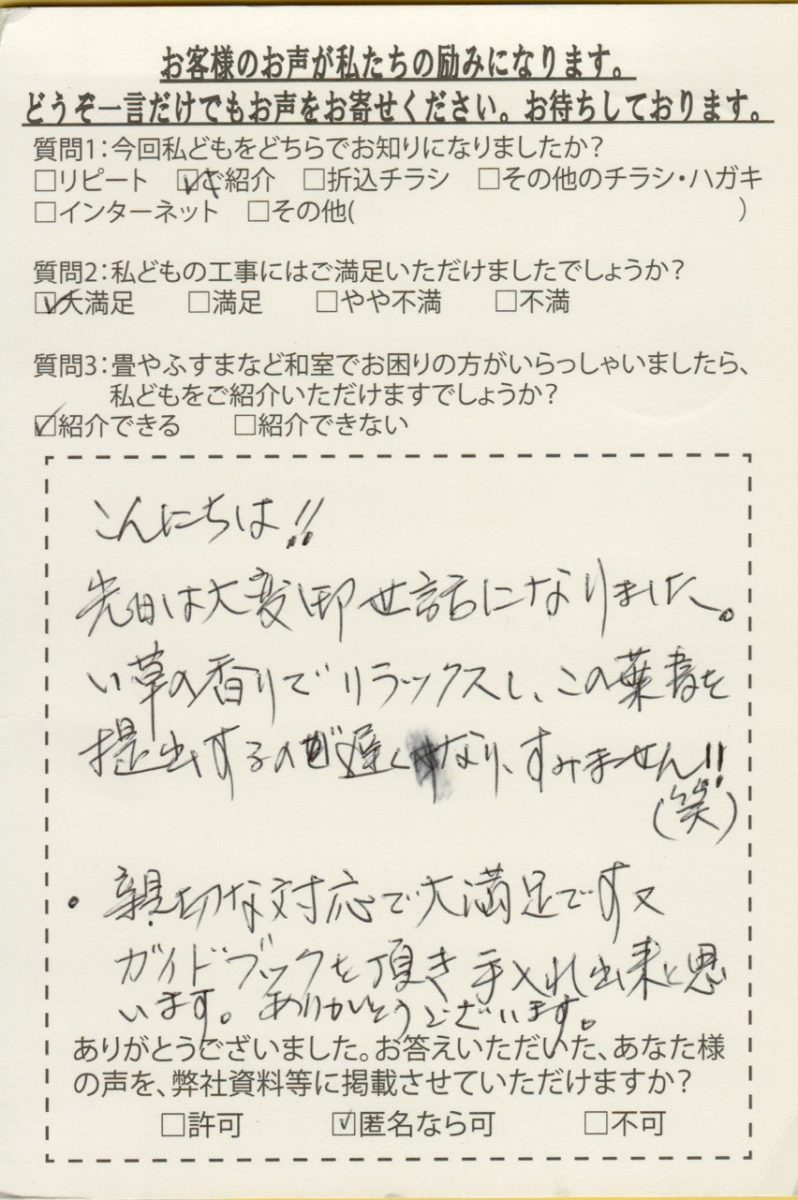 お客様のお声が私たちの励みになります。
どうぞ一言だけでもお声をお寄せください。お待ちしております。
質問1：今回私どもをどちらでお知りになりましたか？
□リピート ☑ご紹介 □折込チラシ □その他のチラシ・ハガキ
□インターネット □その他( )
質問2：私どもの工事にはご満足いただけましたでしょうか？
☑大満足 □満足 □やや不満 □不満
質問3：畳やふすまなど和室でお困りの方がいらっしゃいましたら、
私どもをご紹介いただけますでしょうか？
☑紹介できる □紹介できない
こんにちは!!
先日は大変御世話になりました。
い草の香りでリラックスし、この葉書を
提出するのが遅くなり、すみません!!
(笑)
・親切な対応で大満足です又
ガイドブックを頂き手入れ出来と思
います。ありがとうございます。
ありがとうございました。お答えいただいた、あなた様
の声を、弊社資料等に掲載させていただけますか？
□許可 ☑匿名なら可 □不可